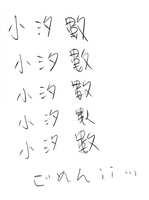 小汐數
小汐數
小汐數
小汐數
小汐數
ごめんii...